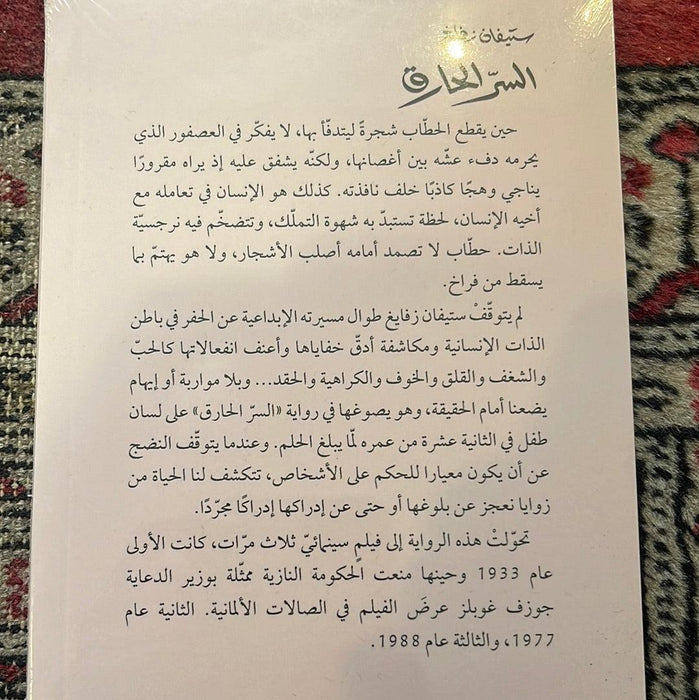 ستيفان زفايغ
السرّ الحارق
حين يقطع الحطّاب شجرةً ليتدفّأ بها، لا يفكّر في العصفور الذي
يحرمه دفء عشّه بين أغصانها، ولكنّه يشفق عليه إذ يراه مقرورًا
يناجي وهجًا كاذبًا خلف نافذته. كذلك هو الإنسان في تعامله مع
أخيه الإنسان، لحظة تستبدّ به شهوة التملّك، وتتضخّم فيه نرجسيّة
الذات. حطّاب لا تصمد أمامه أصلب الأشجار، ولا هو يهتمّ بما
يسقط من فراخ.
لم يتوقّفْ ستيفان زفايغ طوال مسيرته الإبداعية عن الحفر في باطن
الذات الإنسانية ومكاشفة أدقّ خفاياها وأعنف انفعالاتها كالحبّ
والشغف والقلق والخوف والكراهية والحقد... وبلا مواربة أو إيهام
يضعنا أمام الحقيقة، وهو يصوغها في رواية «السرّ الحارق» على لسان
طفل في الثانية عشرة من عمره لمّا يبلغ الحلم. وعندما يتوقّف النضج
عن أن يكون معيارا للحكم على الأشخاص، تتكشف لنا الحياة من
زوايا نعجز عن بلوغها أو حتى عن إدراكها إدراكًا مجرّدًا.
تحوّلتْ هذه الرواية إلى فيلمٍ سينمائيّ ثلاث مرّات، كانت الأولى
عام 1933 وحينها منعت الحكومة النازية ممثّلة بوزير الدعاية
جوزف غوبلز عرضَ الفيلم في الصالات الألمانية. الثانية عام
1977، والثالثة عام 1988.